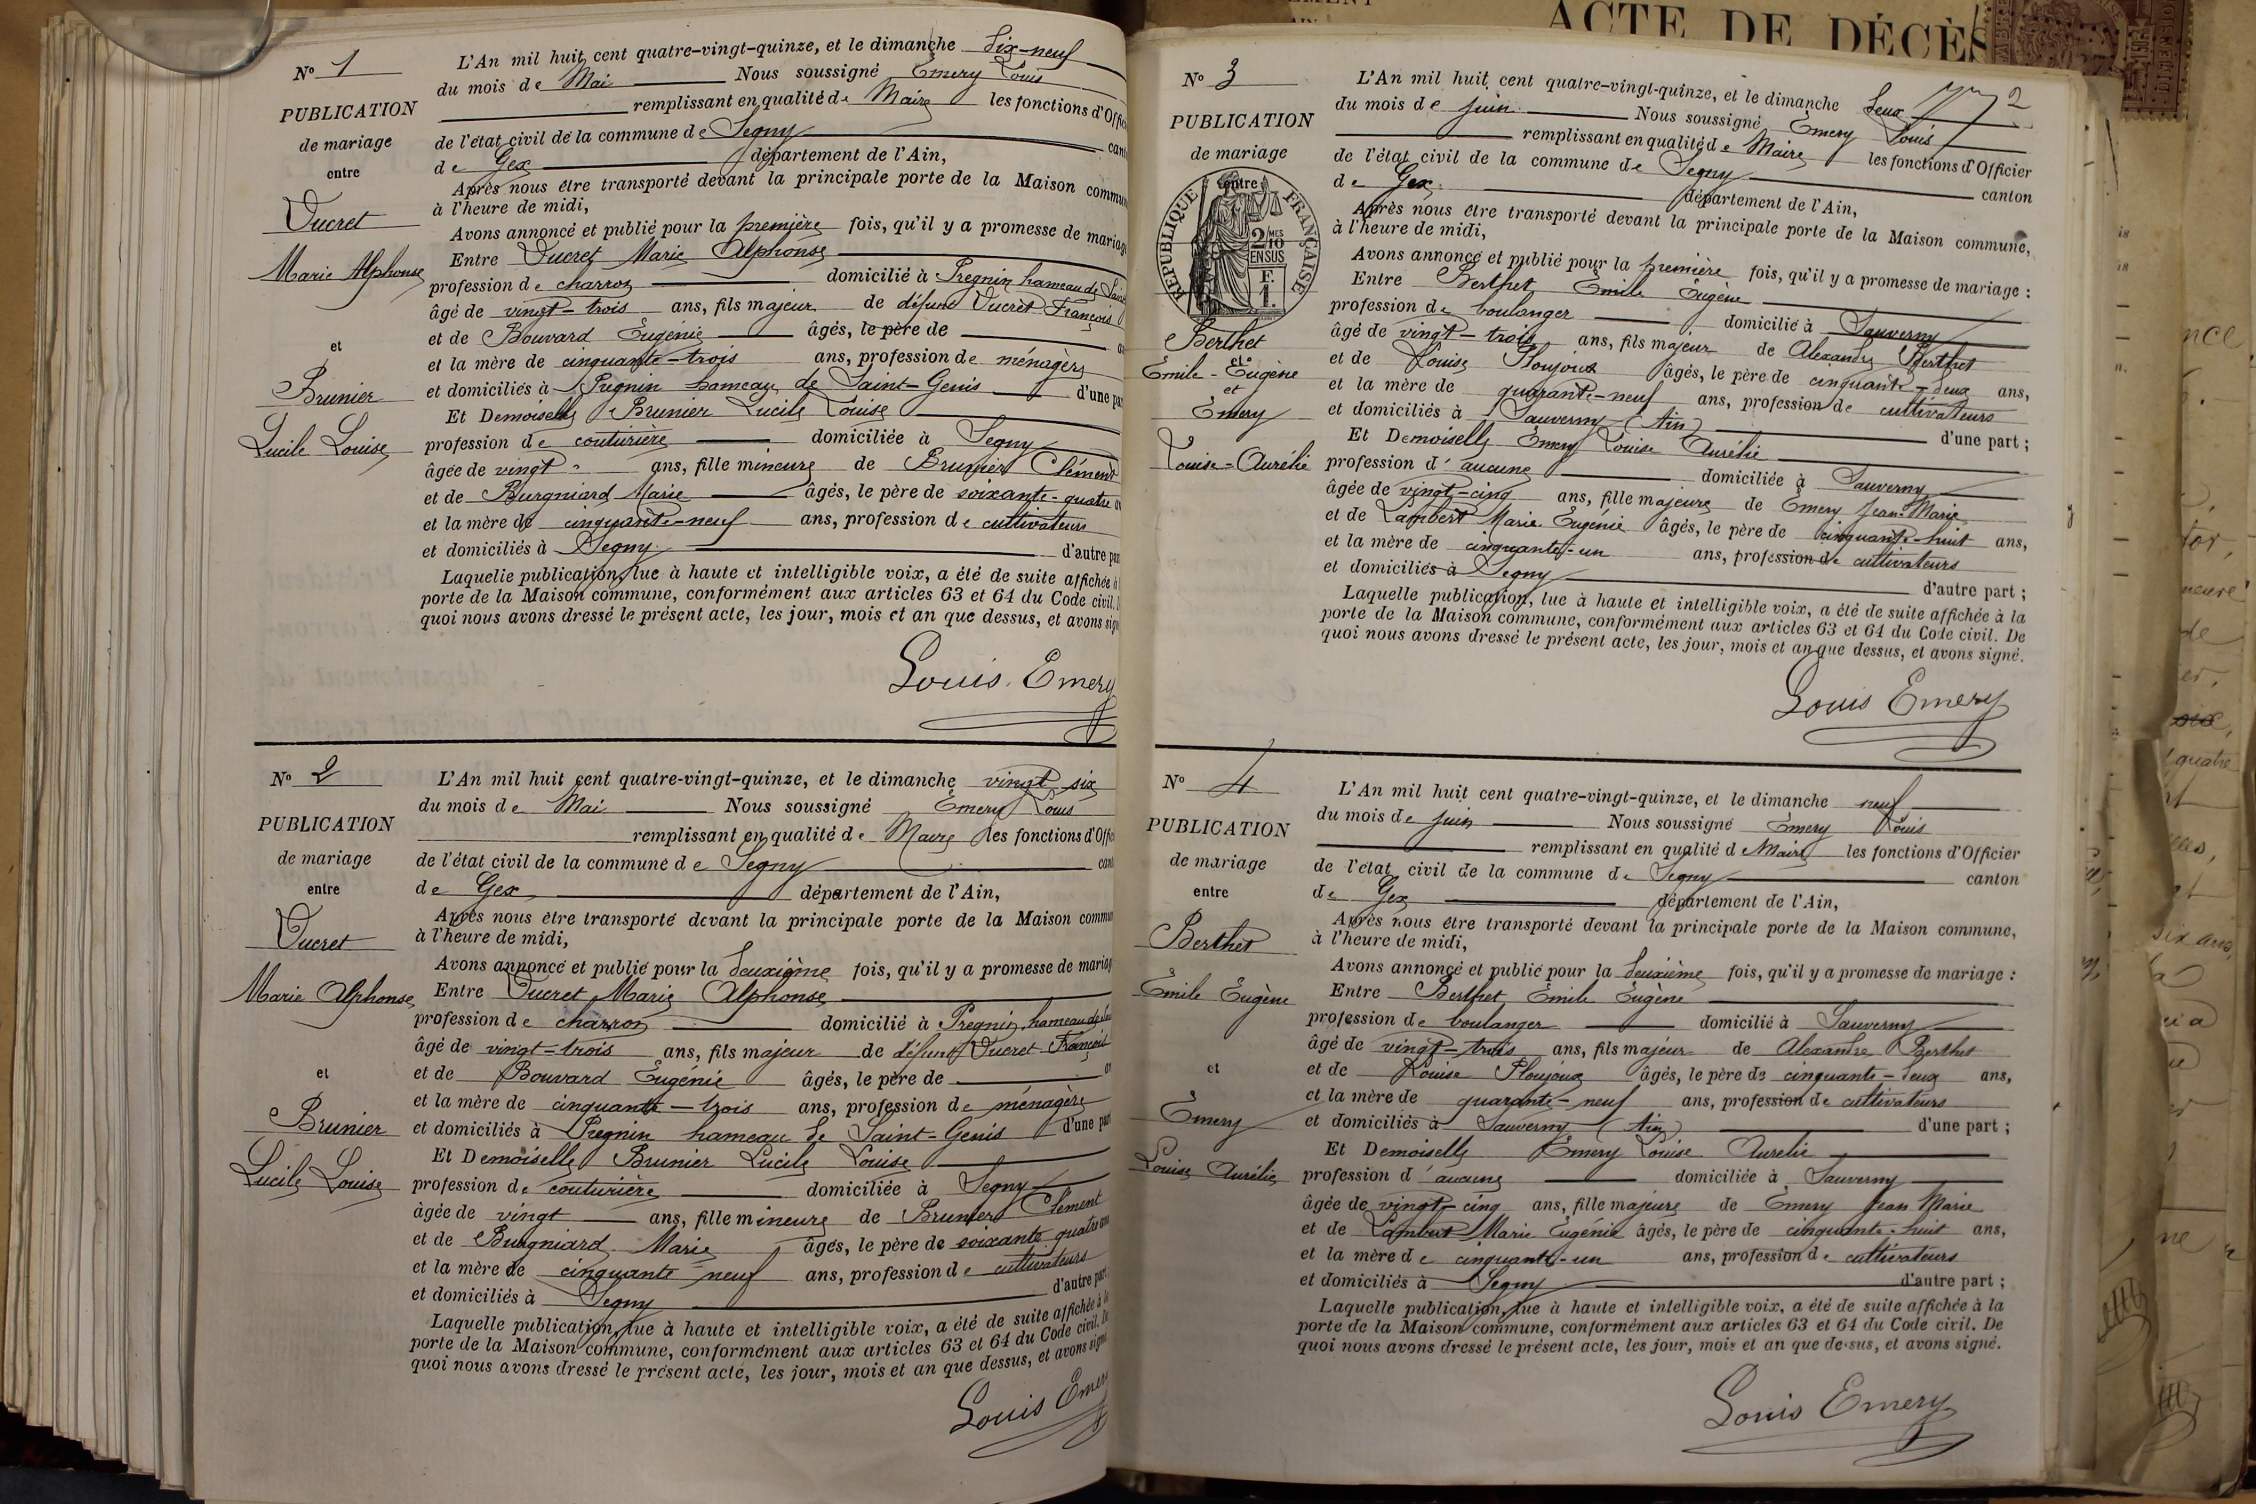 ACTE DE DÉCÈS
Nº 1
PUBLICATION
de mariage
entre
Ducret
Marie Alphonse
et
Brunier
Lucile Louise
L'An mil huit cent quatre-vingt-quinze, et le dimanche dix-neuf
du mois de Mai Nous soussigné Emery Louis
remplissant en qualité de Maire les fonctions d'Offi
de l'état civil de la commune de Segny cant
de Gex département de l'Ain,
Après nous être transporté devant la principale porte de la Maison commun
à l'heure de midi,
Avons annoncé et publié pour la première fois, qu'il y a promesse de mariag
Entre Ducret Marie Alphonse
profession de charron domicilié à Pregnin hameau de Saint
âgé de vingt-trois ans, fils majeur de défunt Ducret François
et de Bouvard Eugénie âgés, le père de
et la mère de cinquante-trois ans, profession de ménagère
et domiciliés à Pregnin hameau de Saint-Genis d'une pa
Et Demoiselle Brunier Lucile Louise
profession de couturière domiciliée à Segny
âgée de vingt - ans, fille mineure de Brunier Clément
et de Burgniard Marie âgés, le père de soixante-quatre
et la mère de cinquante-neuf ans, profession de cultivateurs
et domiciliés à Segny d'autre par
Laquelle publication, lue à haute et intelligible voix, a été de suite affichée à
porte de la Maison commune, conformément aux articles 63 et 64 du Code civil. D
quoi nous avons dressé le présent acte, les jour, mois et an que dessus, et avons sign
Louis Emery
Nº 2
PUBLICATION
de mariage
entre
Ducret
Marie Alphonse
et
Brunier
Lucile Louise
L'An mil huit cent quatre-vingt-quinze, et le dimanche vingt six
du mois de Mai Nous soussigné Emery Louis
remplissant en qualité de Maire les fonctions d'Offi
de l'état civil de la commune de Segny cant
de Gex département de l'Ain,
Après nous être transporté devant la principale porte de la Maison commun
à l'heure de midi,
Avons annoncé et publié pour la deuxième fois, qu'il y a promesse de mariag
Entre Ducret Marie Alphonse
profession de charron domicilié à Pregnin, hameau de
âgé de vingt-trois ans, fils majeur de défunt Ducret François
et de Bouvard Eugénie âgés, le père de
et la mère de cinquante-trois ans, profession de ménagère
et domiciliés à Pregnin hameau de Saint-Genis d'une par
Et Demoiselle Brunier Lucile Louise
profession de couturière domiciliée à Segny
âgée de vingt ans, fille mineure de Brunier Clément
et de Burgniard Marie âgés, le père de soixante quatre ans
et la mère de cinquante neuf ans, profession de cultivateurs
et domiciliés à Segny d'autre part
Laquelle publication, lue à haute et intelligible voix, a été de suite affichée à la
porte de la Maison commune, conformément aux articles 63 et 64 du Code civil. De
quoi nous avons dressé le présent acte, les jour, mois et an que dessus, et avons signé
Louis Emery
2
Nº 3
PUBLICATION
de mariage
entre
RÉPUBLIQUE FRANÇAISE
2/10 MES
EN SUS
F.
1.
Berthet
Émile-Eugène
et
Émery
Louise-Aurélie
L'An mil huit cent quatre-vingt-quinze, et le dimanche deux
du mois de juin Nous soussigné Emery Louis
remplissant en qualité de Maire les fonctions d'Officier
de l'état civil de la commune de Segny canton
de Gex département de l'Ain,
Après nous être transporté devant la principale porte de la Maison commune,
à l'heure de midi,
Avons annoncé et publié pour la première fois, qu'il y a promesse de mariage :
Entre Berthet Émile Eugène
profession de boulanger domicilié à Sauverny
âgé de vingt-trois ans, fils majeur de Alexandre Berthet
et de Louise Ploujoux âgés, le père de cinquante-deux ans,
et la mère de quarante-neuf ans, profession de cultivateurs
et domiciliés à Sauverny (Ain) d'une part ;
Et Demoiselle Émery Louise Aurélie
profession d'aucune domiciliée à Sauverny
âgée de vingt-cinq ans, fille majeure de Émery Jean-Marie
et de Lambert Marie Eugénie âgés, le père de cinquante-huit ans,
et la mère de cinquante-un ans, profession de cultivateurs
et domiciliés à Segny d'autre part ;
Laquelle publication, lue à haute et intelligible voix, a été de suite affichée à la
porte de la Maison commune, conformément aux articles 63 et 64 du Code civil. De
quoi nous avons dressé le présent acte, les jour, mois et an que dessus, et avons signé.
Louis Emery
Nº 4
PUBLICATION
de mariage
entre
Berthet
Émile Eugène
et
Émery
Louise Aurélie
L'An mil huit cent quatre-vingt-quinze, et le dimanche neuf
du mois de juin Nous soussigné Emery Louis
remplissant en qualité de Maire les fonctions d'Officier
de l'état civil de la commune de Segny canton
de Gex département de l'Ain,
Après nous être transporté devant la principale porte de la Maison commune,
à l'heure de midi,
Avons annoncé et publié pour la deuxième fois, qu'il y a promesse de mariage :
Entre Berthet Émile Eugène
profession de boulanger domicilié à Sauverny
âgé de vingt-trois ans, fils majeur de Alexandre Berthet
et de Louise Ploujoux âgés, le père de cinquante-deux ans,
et la mère de quarante-neuf ans, profession de cultivateurs
et domiciliés à Sauverny (Ain) d'une part ;
Et Demoiselle Émery Louise Aurélie
profession d'aucune domiciliée à Sauverny
âgée de vingt-cinq ans, fille majeure de Émery Jean Marie
et de Lambert Marie Eugénie âgés, le père de cinquante-huit ans,
et la mère de cinquante-un ans, profession de cultivateurs
et domiciliés à Segny d'autre part ;
Laquelle publication, lue à haute et intelligible voix, a été de suite affichée à la
porte de la Maison commune, conformément aux articles 63 et 64 du Code civil. De
quoi nous avons dressé le présent acte, les jour, mois et an que dessus, et avons signé.
Louis Emery